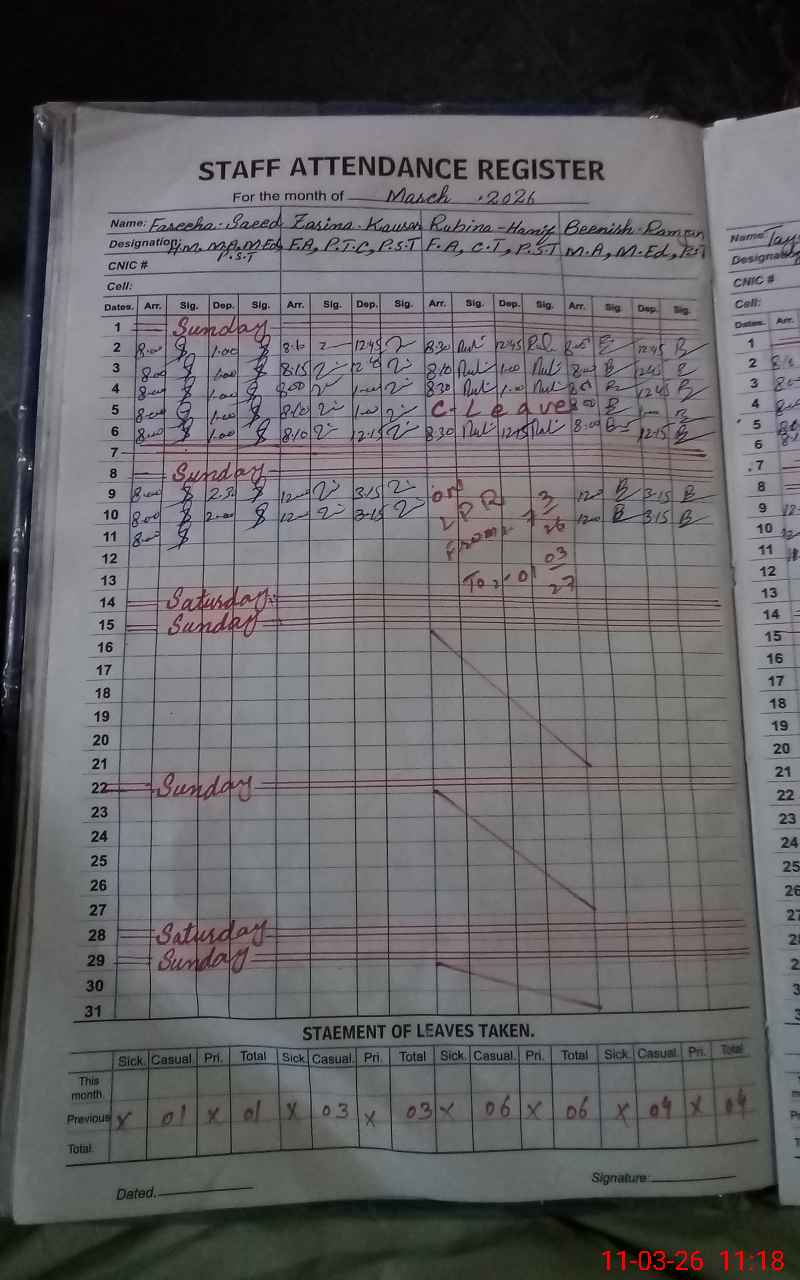 STAFF ATTENDANCE REGISTER
For the month of March . 2026
Name: Fareeha. Saeed Zarina. Kausar Rubina - Hanif Beenish - Ramzan
Designation: H.M. M.A, M.Ed, P.S.T F.A, P.T.C, P.S.T F.A, C.T, P.S.T M.A, M.Ed, P.S.T
CNIC #
Cell:
Dates. Arr. Sig. Dep. Sig. Arr. Sig. Dep. Sig. Arr. Sig. Dep. Sig. Arr. Sig. Dep. Sig.
1 Sunday
2 8:00 1:00 8:10 12:45 8:30 12:45 12:45
3 8:00 1:00 8:15 8:10 1:00 8:00 12:45
4 8:00 1:00 8:00 1:00 8:30 1:00 12:45
5 8:00 1:00 8:10 1:00 C-Leave
6 8:00 1:00 8:10 12:15 8:30 12:15 8:00 12:15
7
8 Sunday
9 8:00 2:30 12:00 3:15 on 12:00 3:15
10 8:00 2:00 12:00 3:15 LPR 12:00 3:15
11 8:00 From
12
13 To 01 03 27
14 Saturday
15 Sunday
16
17
18
19
20
21
22 Sunday
23
24
25
26
27
28 Saturday
29 Sunday
30
31
STAEMENT OF LEAVES TAKEN.
Sick. Casual. Pri. Total Sick. Casual. Pri. Total Sick. Casual. Pri. Total Sick. Casual. Pri. Total
This month
Previous X 01 X 01 X 03 X 03 X 06 X 06 X 04 X 04
Total.
Dated.
Signature:
Name:
Designation
CNIC #
Cell:
Dates. Arr.
1
2
3
4
5
6
7
8
9
10
11
12
13
14
15
16
17
18
19
20
21
22
23
24
25
11-03-26 11:18